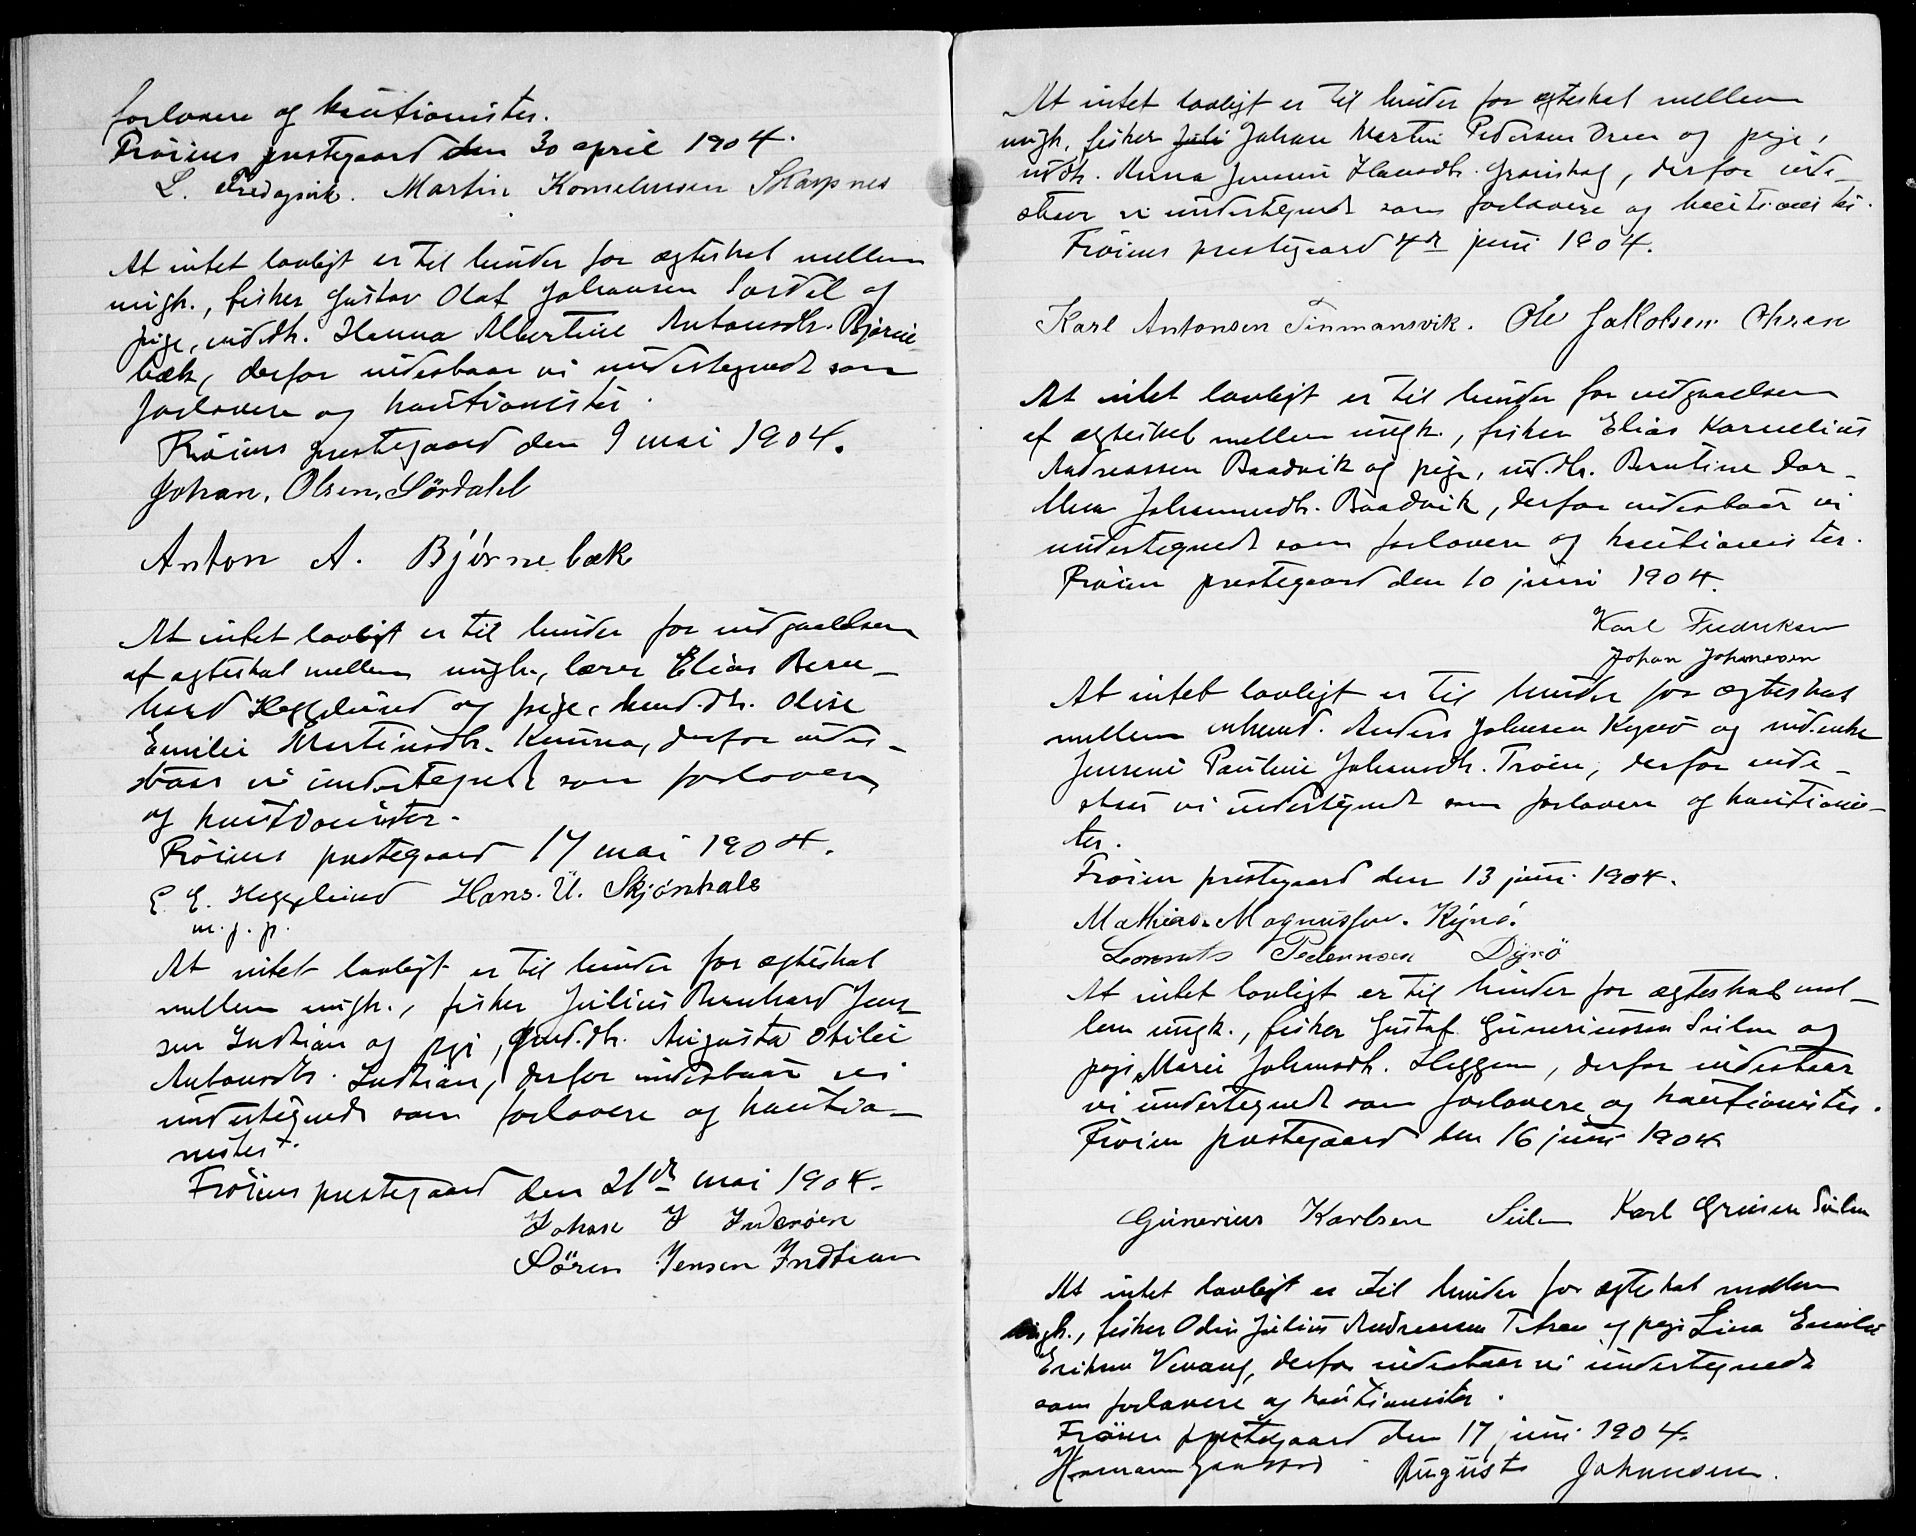 forlovere og kautionister.
Frøiens prestegaard den 30 april 1904.
L. Fredagsvik. Martin Korneliussen Skarpnes
At intet lovligt er til hinder for ægteskab mellem
ungk., fisker Gustav Olaf Johansen Sørdal og
pige, Hanna Albertine Antonsdtr. Bjørne
bæk, derfor indestaar vi undertegnede som
forlovere og kautionister.
Frøiens prestegaard den 9 mai 1904.
Johan. Olsen. Sørdahl
Anton A. Bjørnebæk
At intet lovligt er til hinder for indgaaelsen
af ægteskab mellem ungk., lærer Elias Bern-
hard Hegglund og pige, Olise
Emilie Martinsdtr. derfor indes-
taar vi undertegnede som forlovere
og kautionister.
Frøiens prestegaard 17 mai 1904.
E. E. Hegglund Hans. U. Skjønhals
m. f. p.
At intet lovligt er til hinder for ægteskab
mellem ungk., fisker Julius Bernhard Jen-
sen Indtian og pige, Augusta Otilie
Antonsdtr. Indtian, derfor indestaar vi
undertegnede som forlovere og kautio-
nister.
Frøiens prestegaard den 21de mai 1904.
Johan J Inderøen
Søren Jensen Indtian
At intet lovligt er til hinder for ægteskab mellem
ungk. fisker Johan Martin Pedersen og pige,
Anna Hansdtr. derfor inde-
staar vi undertegnede som forlovere og kautionister.
Frøiens prestegaard 4de juni 1904.
Karl Antonsen Tinmansvik. Ole Jakobsen
At intet lovligt er til hinder for indgaaelsen
af ægteskab mellem ungk., fisker Elias Kornelius
Andreassen Baadvik og pige, Berntine Dor-
thea Johannesdtr. Baadvik, derfor indestaar vi
undertegnede som forlovere og kautionister.
Frøien prestegaard den 10 juni 1904.
Karl Fredriksen
Johan Johansen
At intet lovligt er til hinder for ægteskab
mellem enkemd. Anders Johnsen Kynø og
Jensine Pauline Johansdtr. derfor inde-
staar vi undertegnede som forlovere og kautionis-
ter.
Frøien prestegaard den 13 juni 1904.
Mathias. Magnussen. Kynø.
Lorents Pedersen Dyrø
At intet lovligt er til hinder for ægteskab mel-
lem ungk., fisker Gustaf Gunerinssen og
pige Marie Johansdtr. Heggem, derfor indestaar
vi undertegnede som forlovere og kautionister.
Frøien prestegaard den 16 juni 1904
Gunerius Karlsen Karl
At intet lovligt er til hinder for ægteskab mellem
ungk., fisker Odin Julius Andreassen og pige Lina Emilie
derfor indestaar vi undertegnede
som forlovere og kautionister.
Frøien prestegaard den 17 juni 1904.
August Johansen.